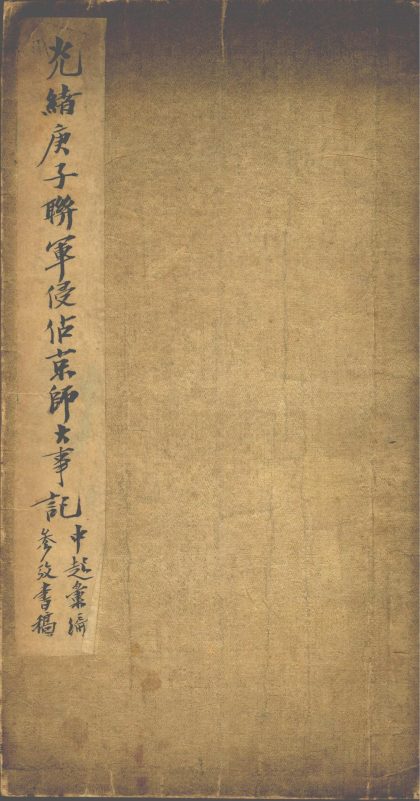 光緒庚子聯軍侵佔京師大事記
中起彙編
參攷書稿